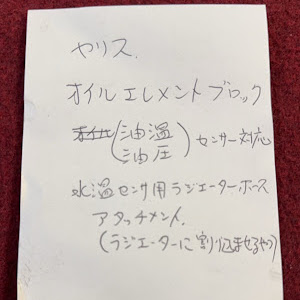 ヤリス.
オイルエレメントブロック
(油温
油圧) センサー対応
水温センサ用ラジエーターホース
アタッチメント.
(ラジエーターに割り込ませるやつ)